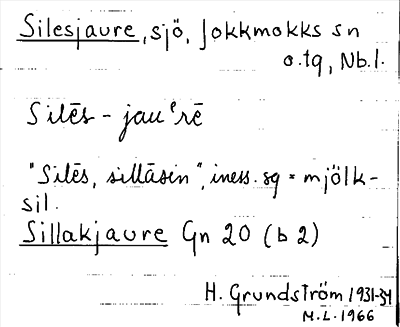 Silesjaure, sjö, Jokkmokks sn
o.tg, Nb.l.
Silēs - jauᵉrē
"Silēs, sillāsin", iness. sg = mjölk-
sil.
Sillakjaure Gn 20 (b 2)
H. Grundström 1931-34
M.L. 1966